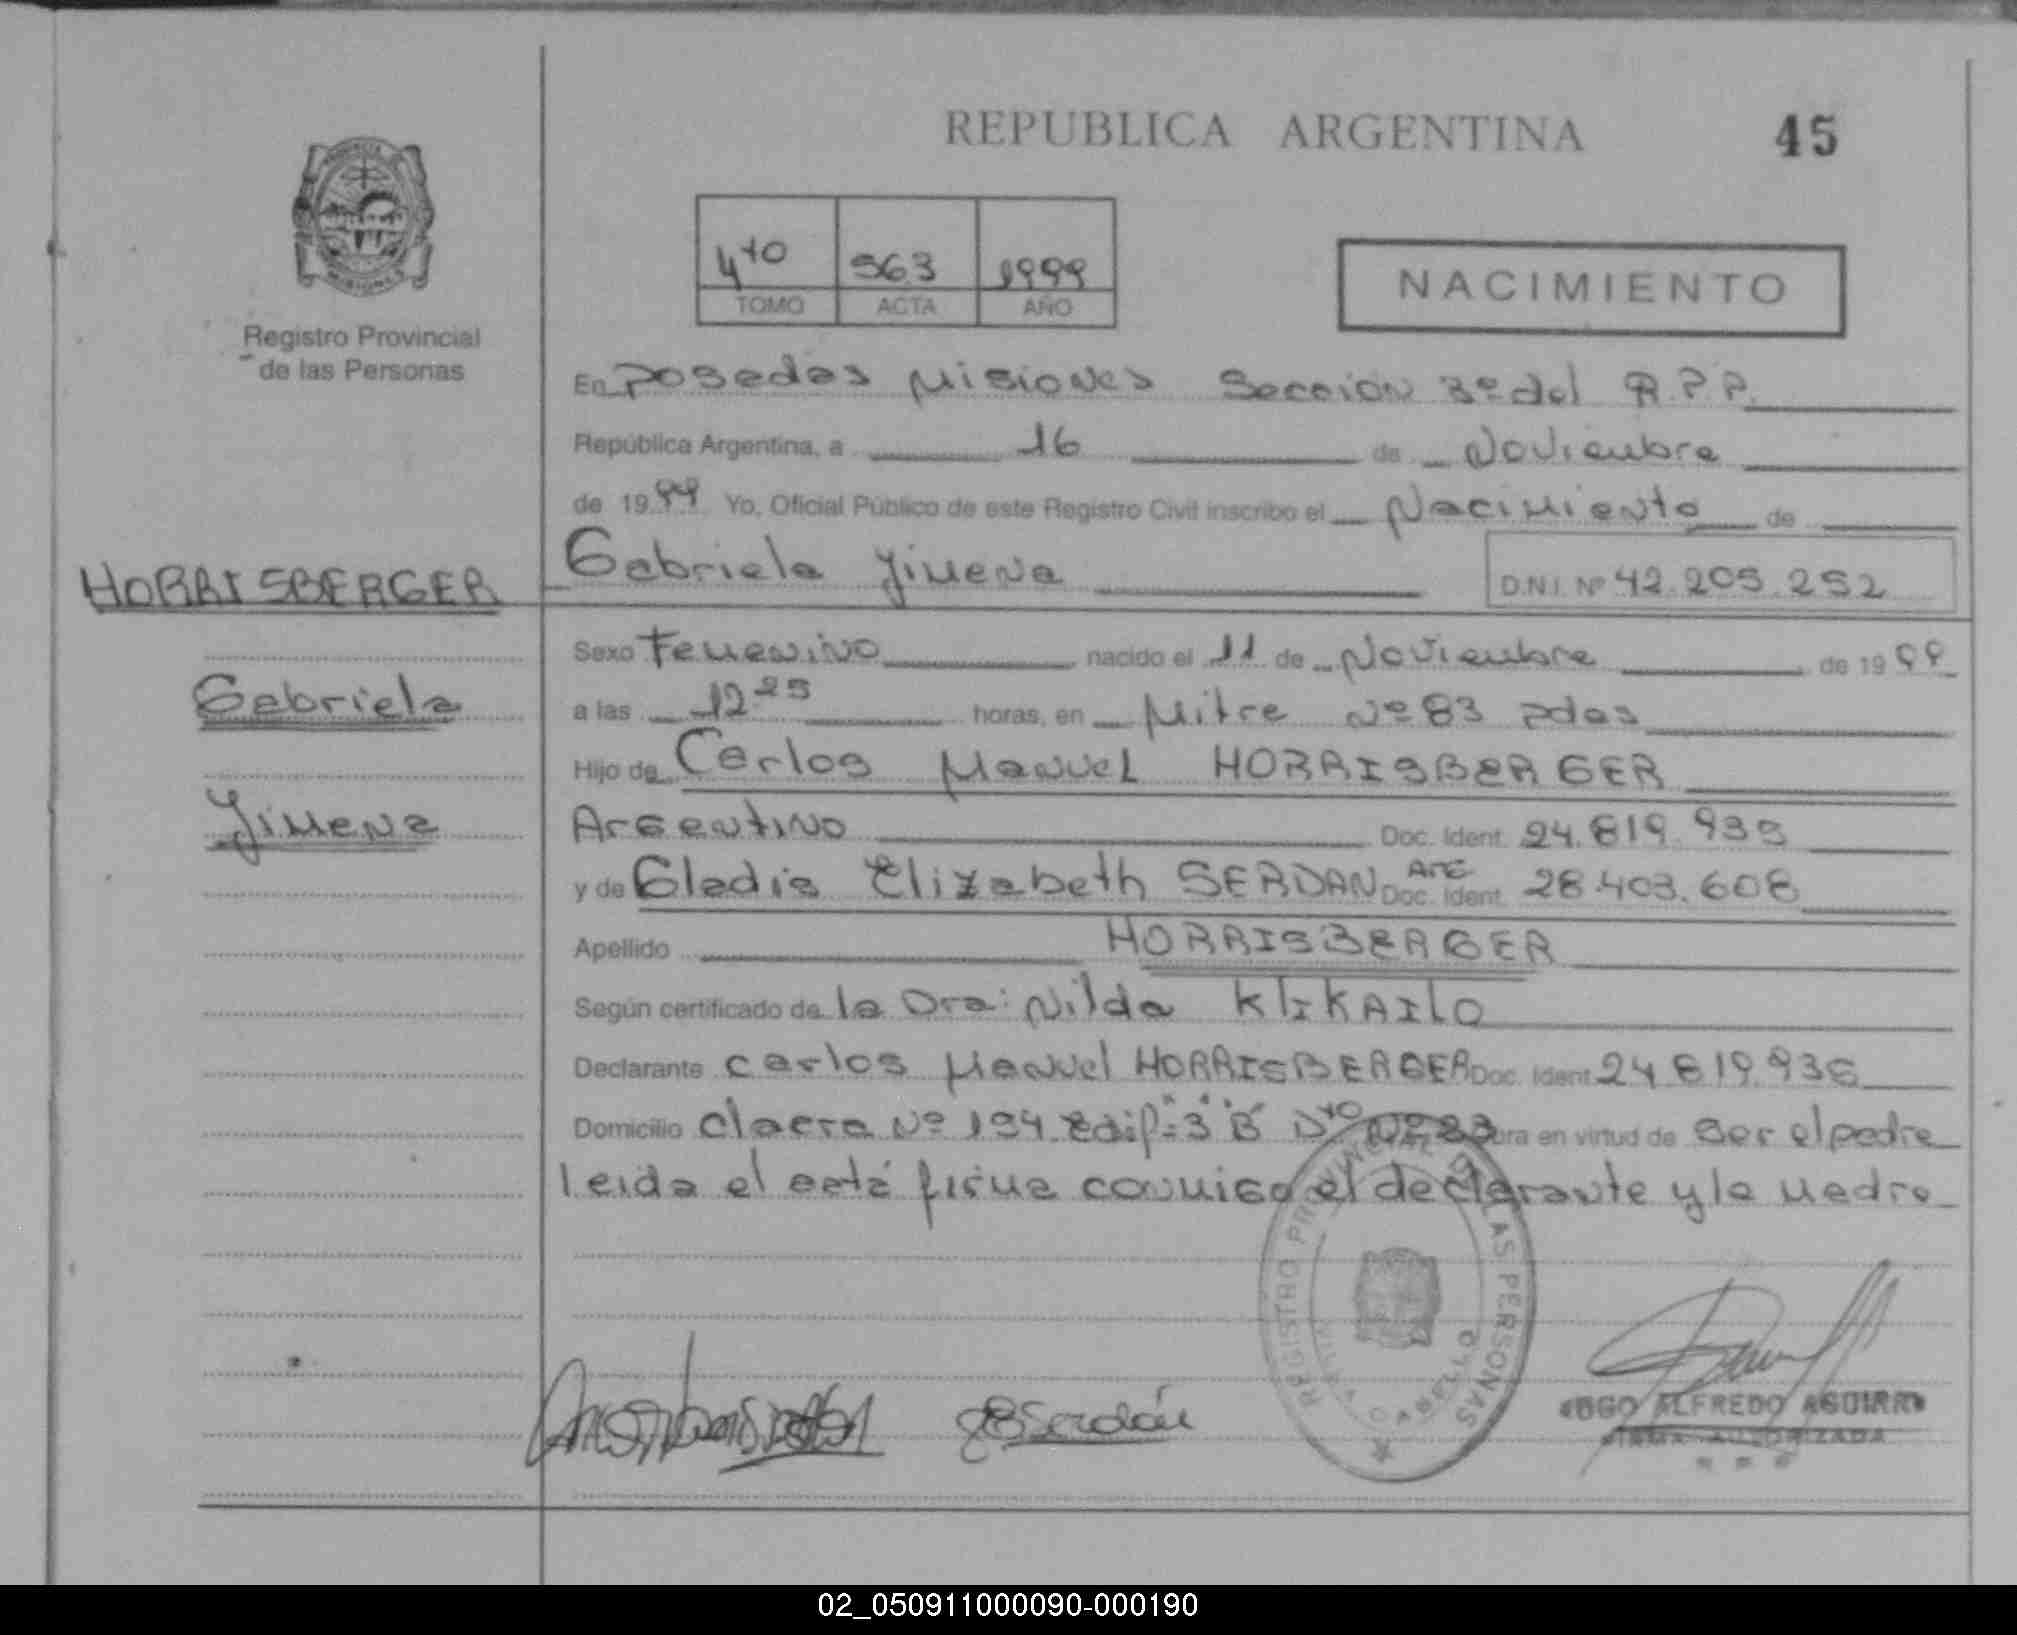 REPUBLICA ARGENTINA
45
4to 563 1999
TOMO ACTA AÑO
NACIMIENTO
Registro Provincial
de las Personas
En Posadas Misiones Sección 3º del R.P.P.
República Argentina, a 16 de Noviembre
de 1999 Yo, Oficial Público de este Registro Civil inscribo el Nacimiento de
HORRISBERGER
Gabriela Jimena
D.N.I. Nº 42.205.252
Sexo Femenino nacido el 11 de Noviembre de 1999
Gabriela
a las 12 25 horas, en Mitre Nº 83 Pdas
Hijo de Carlos Manuel HORRISBERGER
Jimena
Argentino Doc. Ident. 24.819.935
y de Gladis Elizabeth SERDAN Arg Doc. Ident. 28.403.608
Apellido HORRISBERGER
Según certificado de la Dra: Nilda KLIKAILO
Declarante Carlos Manuel HORRISBERGER Doc. Ident. 24.819.936
Domicilio Nº 194 Edif: 3 "B" Dto Nº 23 obra en virtud de ser el padre
leida el acta firma conmigo el declarante y la madre
REGISTRO PROVINCIAL DE LAS PERSONAS
VILLA CABELLO
Serdán
HUGO ALFREDO AGUIRRE
FIRMA AUTORIZADA
02_050911000090-000190